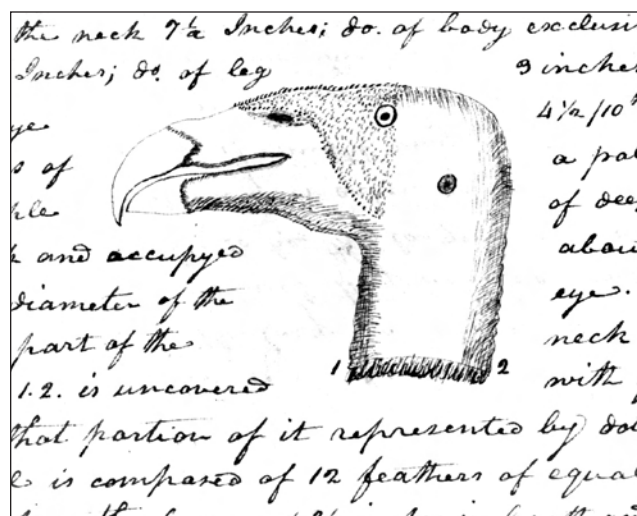 the neck 7 ½ Inches; do. of body exclusi
Inches; do. of leg 9 inches
ye 4 1/2/10th
s of a pal
ple of dee
k and accupyed abou
diameter of the eye.
part of the neck
1 2
1.2. is uncovered with
that portion of it represented by do
e is compased of 12 feathers of equa